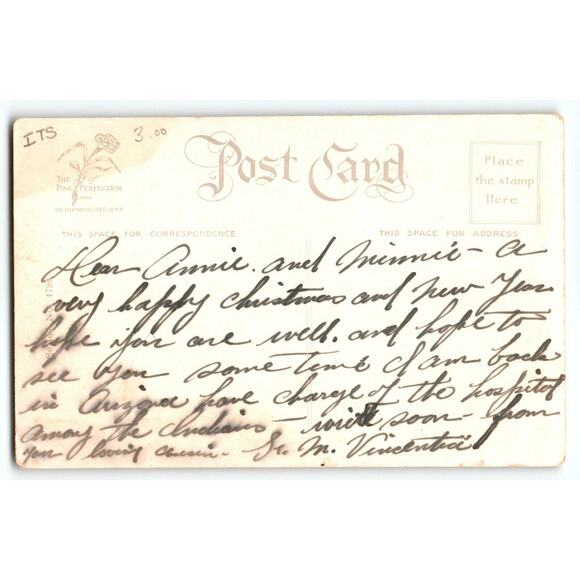 ITS
3.00
THE
PINK PERFECTION
Post Card
Place
the stamp
Here
THIS SPACE FOR CORRESPONDENCE
THIS SPACE FOR ADDRESS
Dear Annie. and Minnie - a
very happy christmas and new Year
hope you are well. and hope to
see you some time I am back
in Arizona have charge of the hospital
among the Indians - write soon - from
your loving cousin. Sr. M. Vincentia.